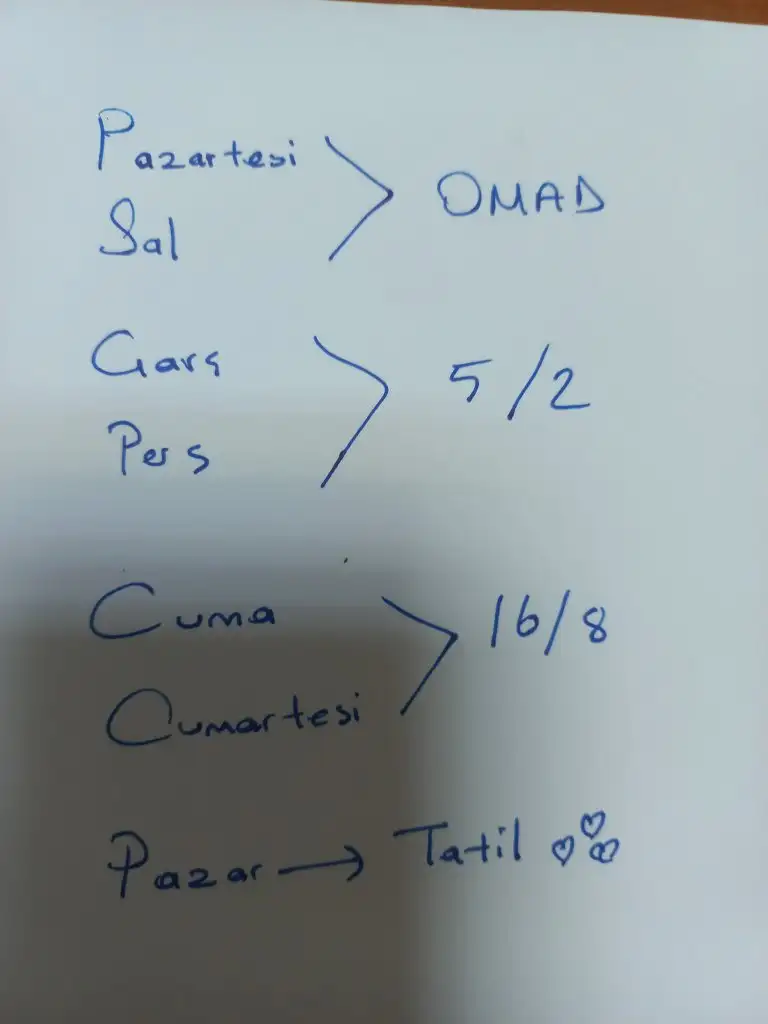 Pazartesi
Sal
OMAD
Çarş
Perş
5/2
Cuma
Cumartesi
16/8
Pazar → Tatil ♡♡♡